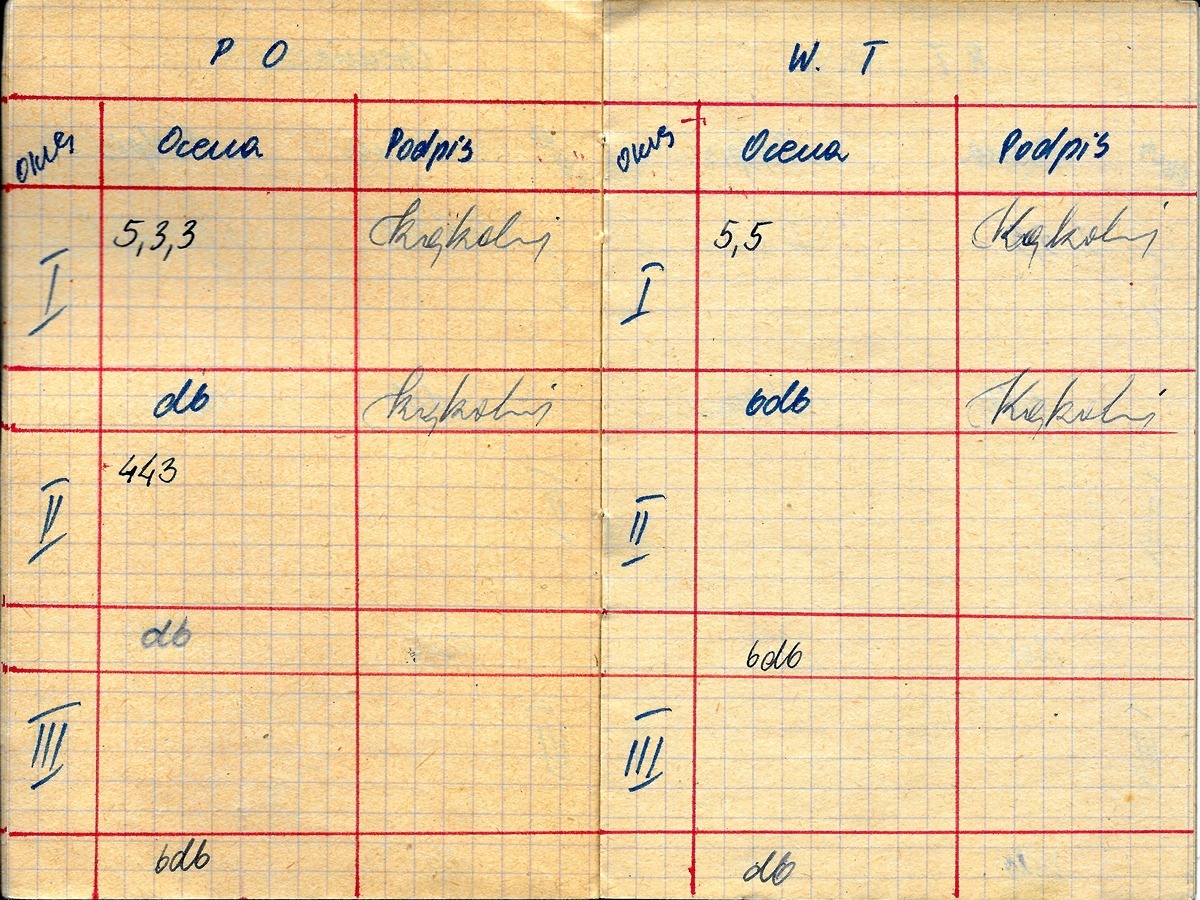 P O
Okres Ocena Podpis
I 5,3,3 Kąkolnij
db Kąkolnij
II 443
db
III
bdb
W. T
Okres Ocena Podpis
I 5,5 Kąkolnij
bdb Kąkolnij
II
bdb
III
db